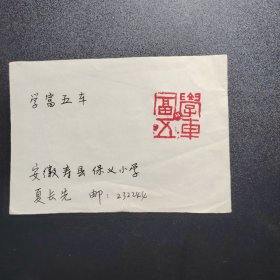 学富五车
學富五車
安徽寿县保义小学
夏长先 邮：232244